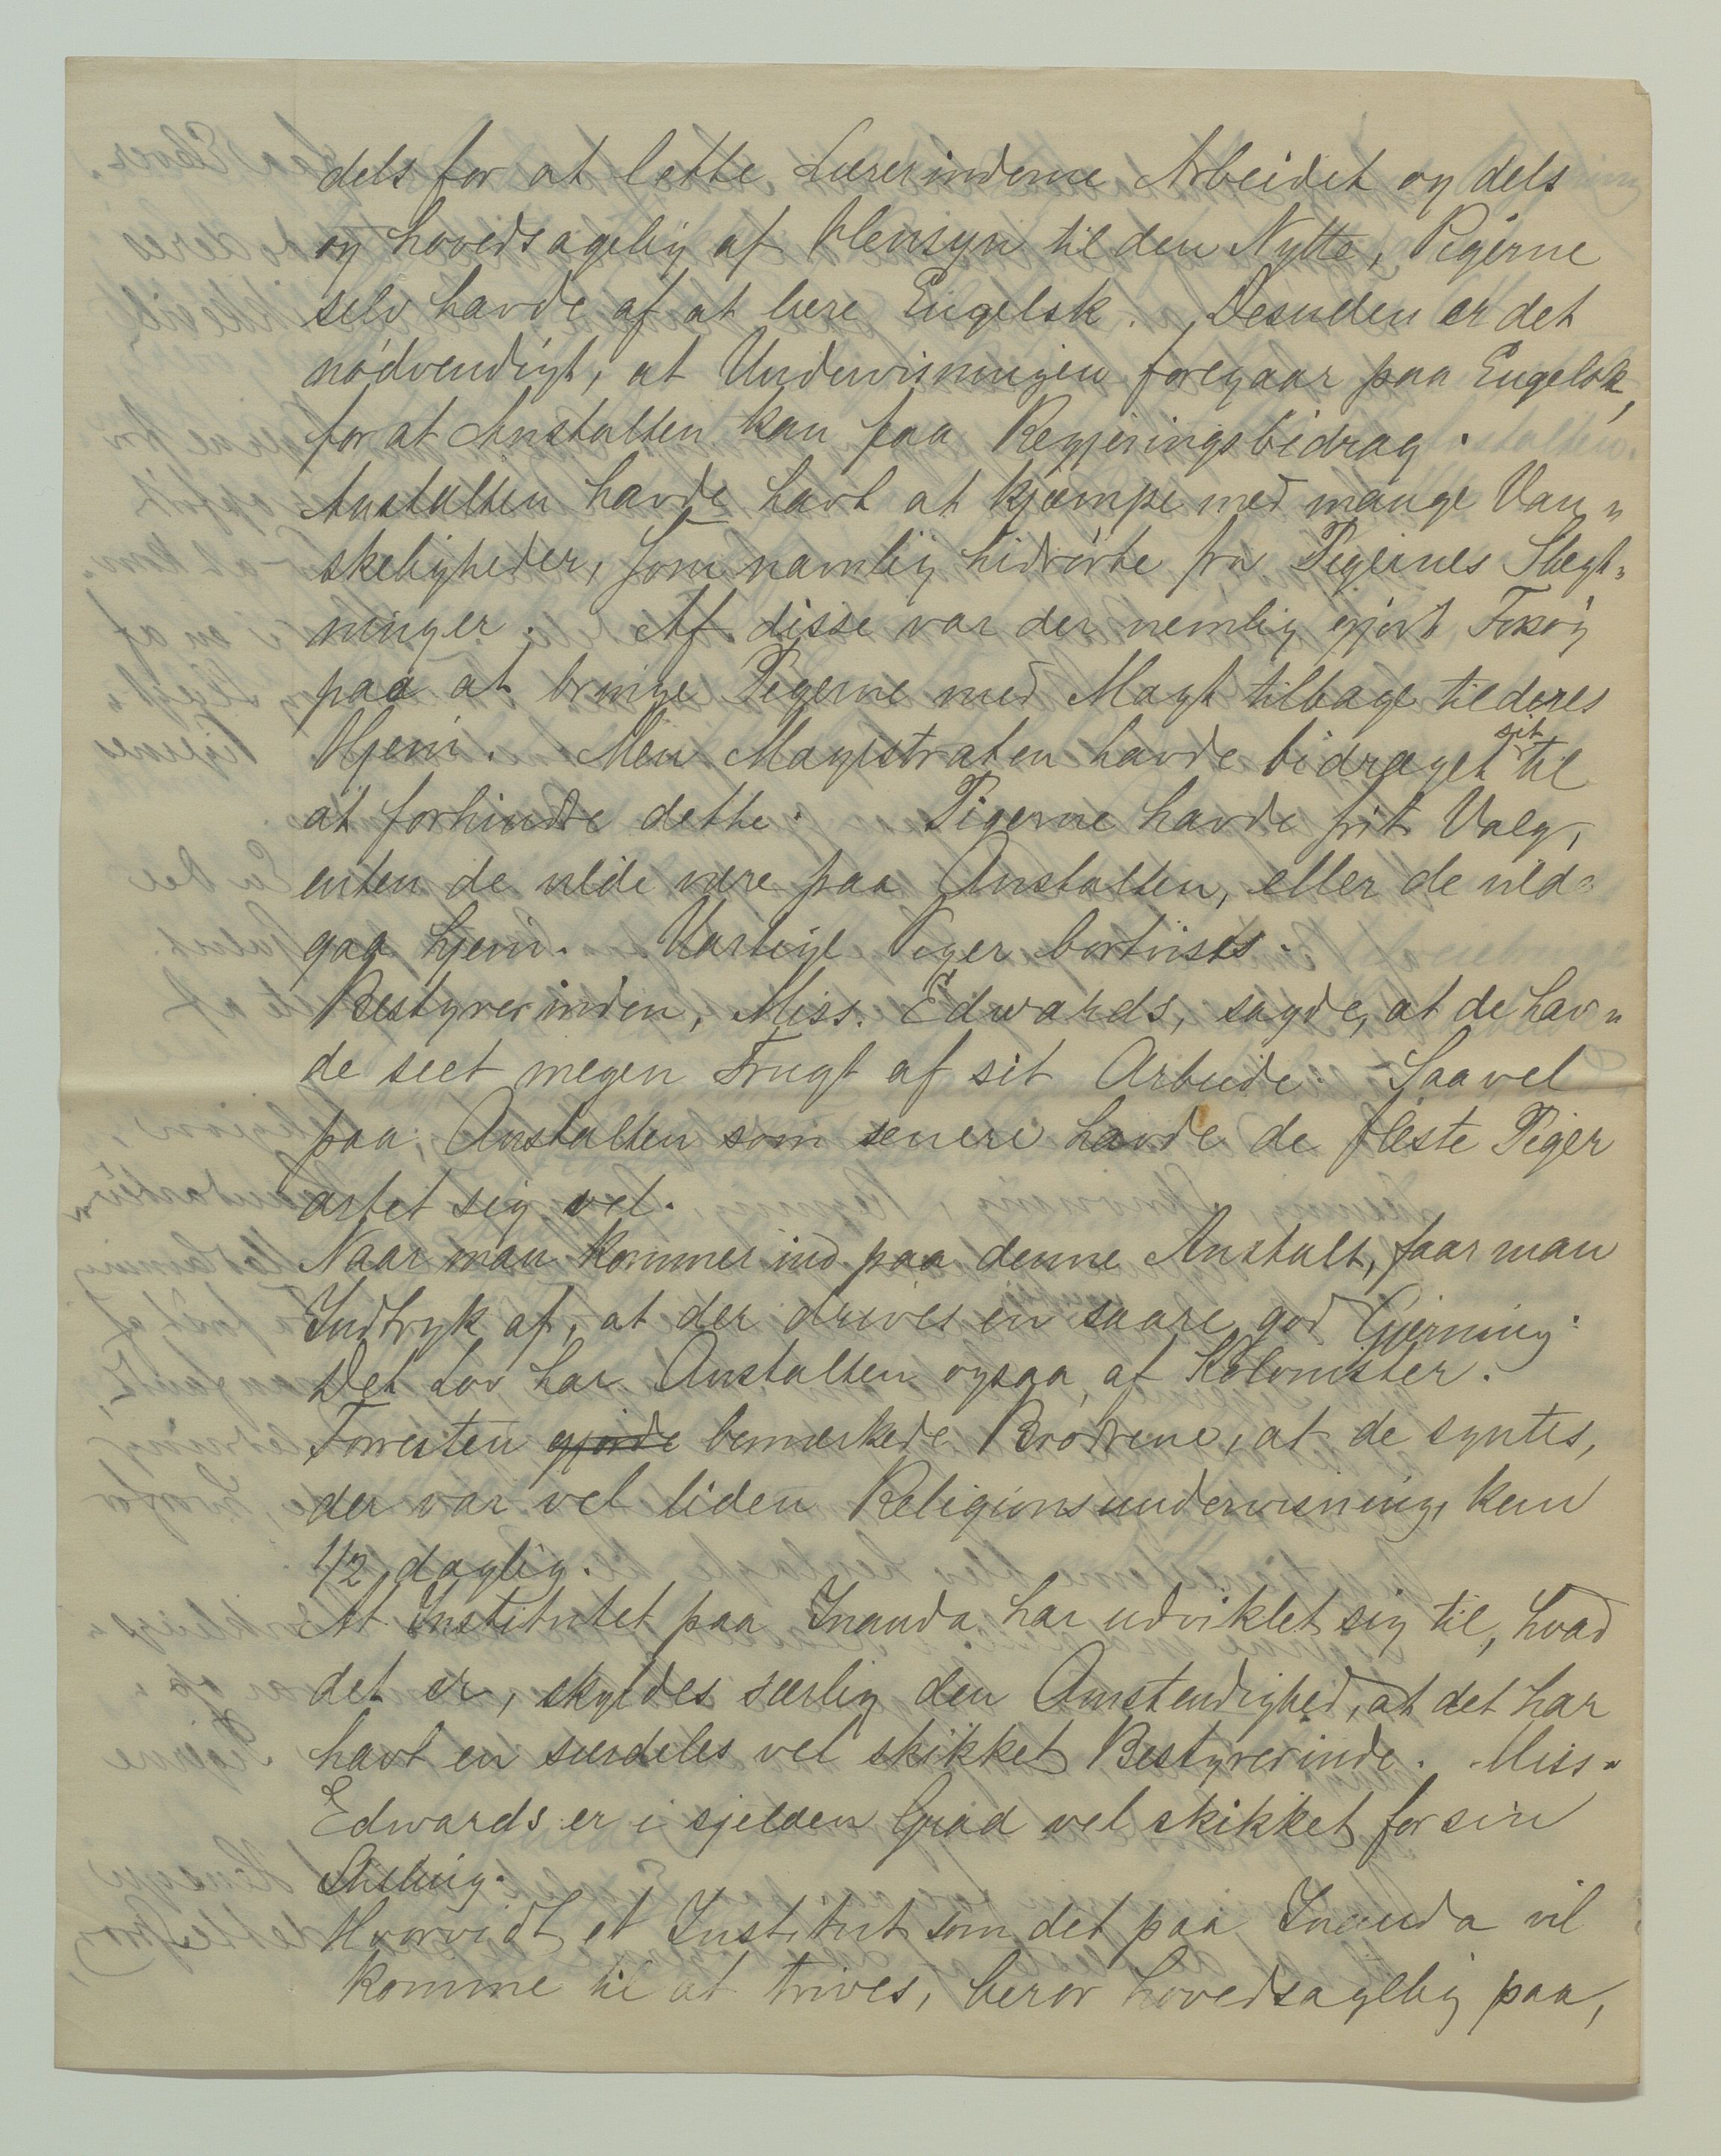 dels for at lette Lærerinderne Arbeidet og dels
og hovedsagelig af Hensyn til den Nytte, Pigerne
selv havde af at lære Engelsk. Desuden er det
nødvendigt, at Undervisningen foregaar paa Engelsk,
for at Anstalten kan faa Regjeringsbidrag.
Anstalten havde havt at kjæmpe med mange Van„
skeligheder, som navnlig hidrørte fra Pigernes Slægt„
ninger. Af disse var der nemlig gjort Forsøg
paa at bringe Pigerne med Magt tilbage til deres
Hjem. Men Magistraten havde bidraget sit til
at forhindre dette. Pigerne havde frit Valg,
enten de vilde være paa Anstalten, eller de vilde
gaa hjem. Uartige Piger bortvistes.
Bestyrerinden, Miss. Edwards, sagde, at de hav„
de seet megen Frugt af sit Arbeide. Saavel
paa Anstalten som senere havde de fleste Piger
artet sig vel.
Naar man kommer ind paa denne Anstalt, faar man
Indtryk af, at der drives en saare god Gjerning.
Det Lov har Anstalten ogsaa af Kolonister.
Forresten gjorde bemærkede Brødrene, at de syntes,
der var vel liden Religionsundervisning, kun
1/2 daglig.
At Institutet paa Inanda har udviklet sig til, hvad
det er, skyldes særlig den Omstendighed, at det har
havt en særdeles vel skikket Bestyrerinde. Miss.
Edwards er i sjelden Grad vel skikket for sin
Stilling.
Hvorvidt et Institut som det paa Inanda vil
komme til at trives, beror hovedsagelig paa,